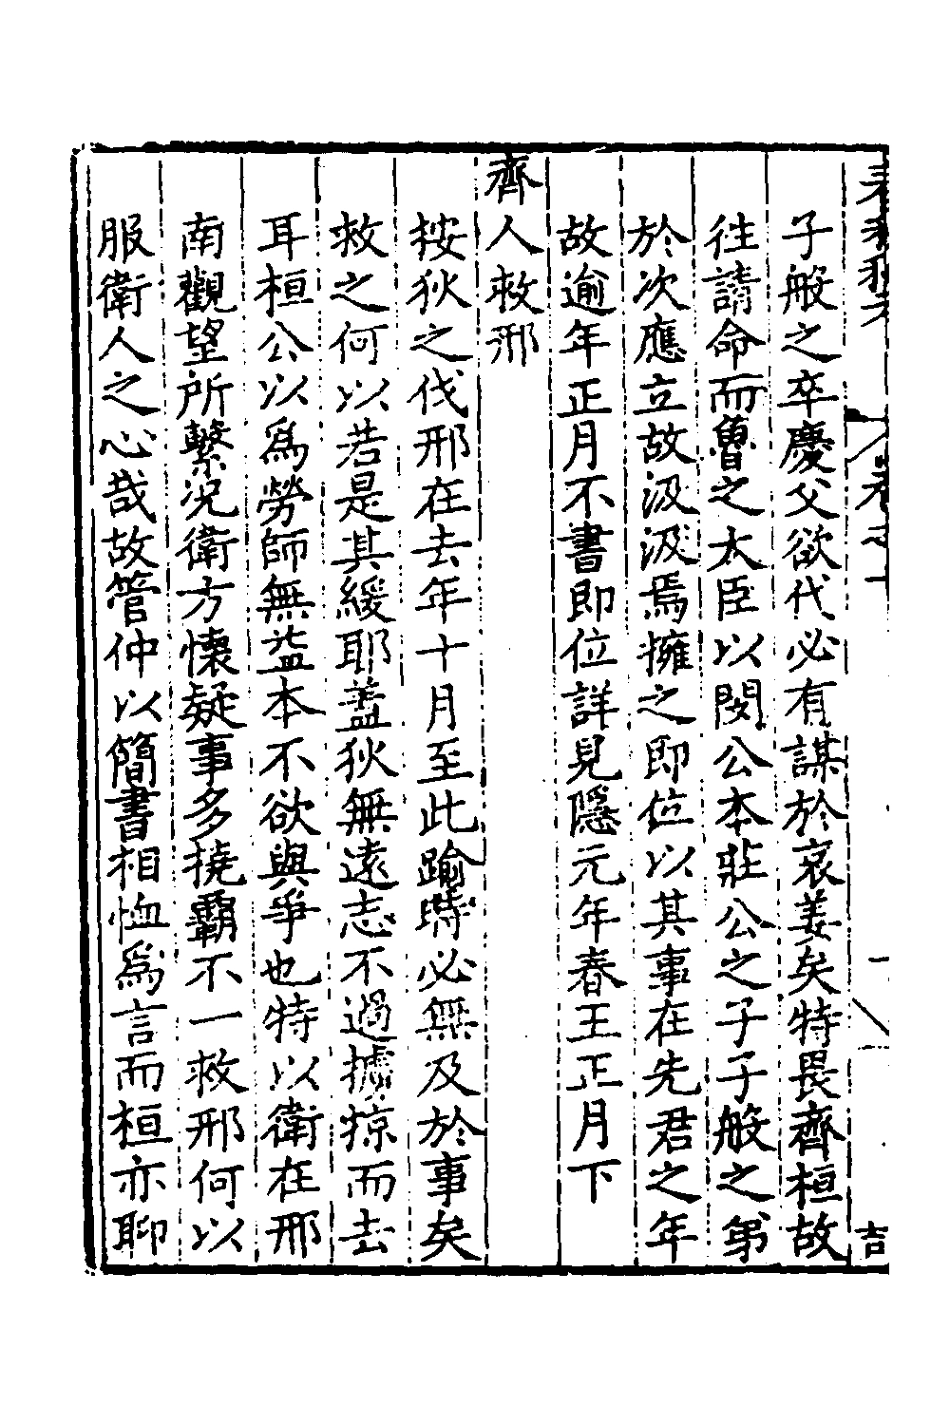 子般之卒慶父欲代必有謀於哀姜矣特畏齊桓故
往請命而魯之太臣以閔公本莊公之子子般之第
於次應立故汲汲焉擁之即位以其事在先君之年
故逾年正月不書即位詳見隱元年春王正月下
齊人救邢
按狄之伐邢在去年十月至此踰時必無及於事矣
救之何以若是其緩耶蓋狄無遠志不過擄掠而去
耳桓公以爲勞師無益本不欲與爭也特以衛在邢
南觀望所繫況衛方懷疑事多撓霸不一救邢何以
服衛人之心哉故管仲以簡書相恤爲言而桓亦聊